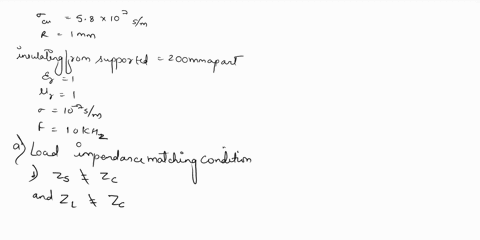 σcu = 5.8 × 10⁷ s/m
R = 1mm
insulating from supported = 200mm apart
εr = 1
μr = 1
σ = 10⁻⁷ s/m
F = 10KHz
a) Load impendance matching condition
1) Zs ≠ Zc
and ZL ≠ Zc